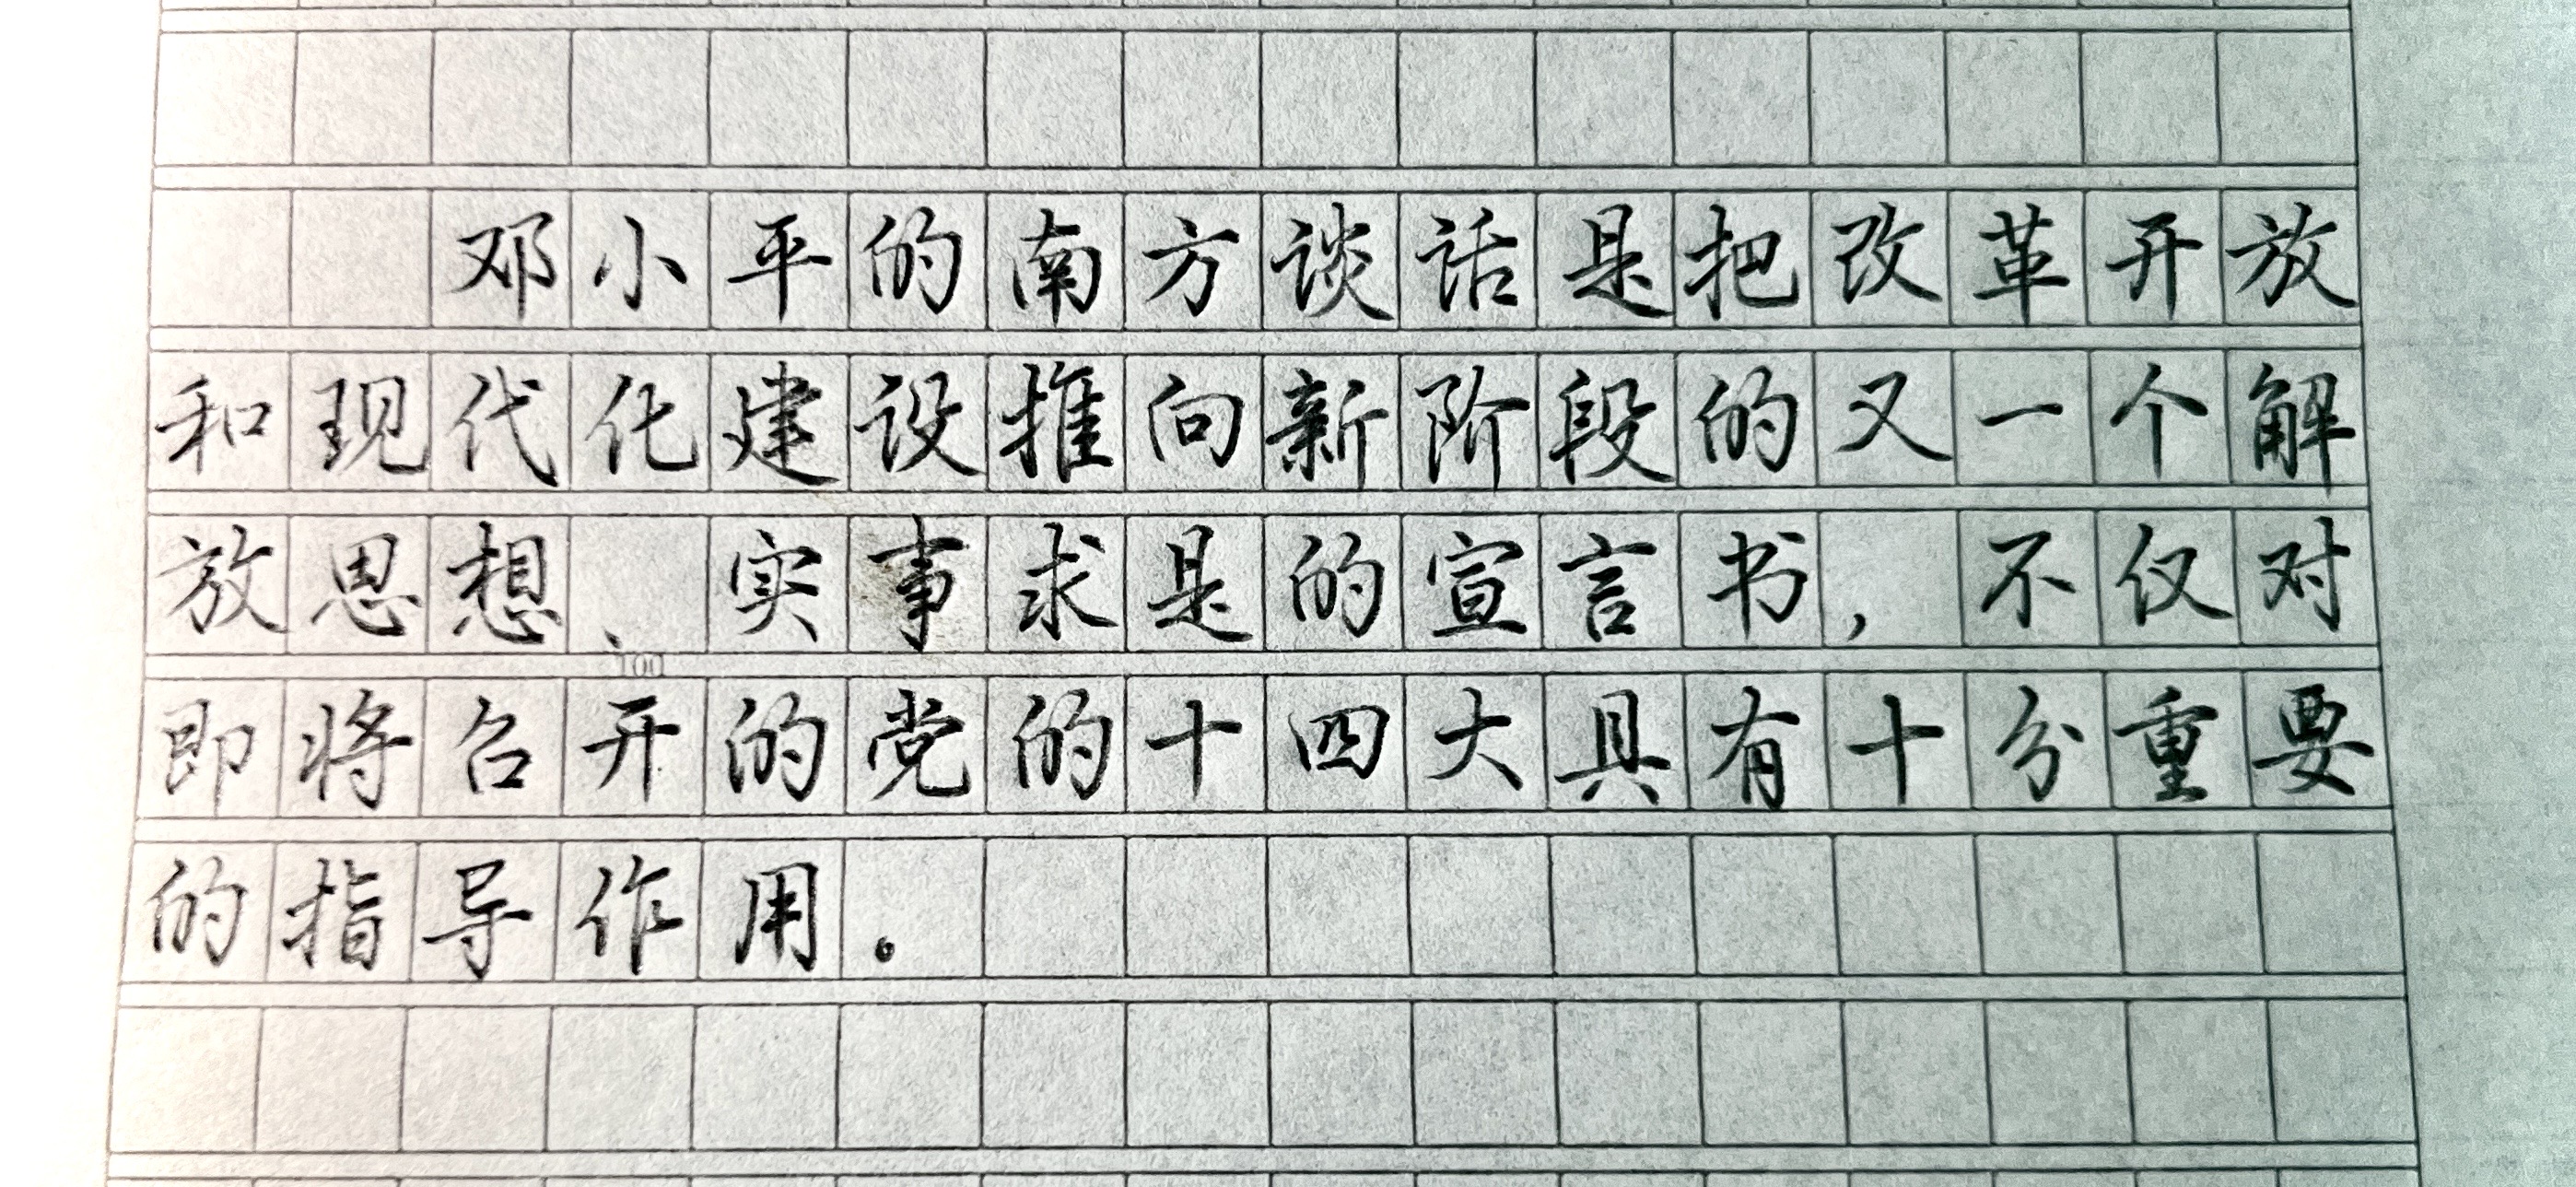 邓小平的南方谈话是把改革开放
和现代化建设推向新阶段的又一个解
放思想、实事求是的宣言书，不仅对
100
即将召开的党的十四大具有十分重要
的指导作用。